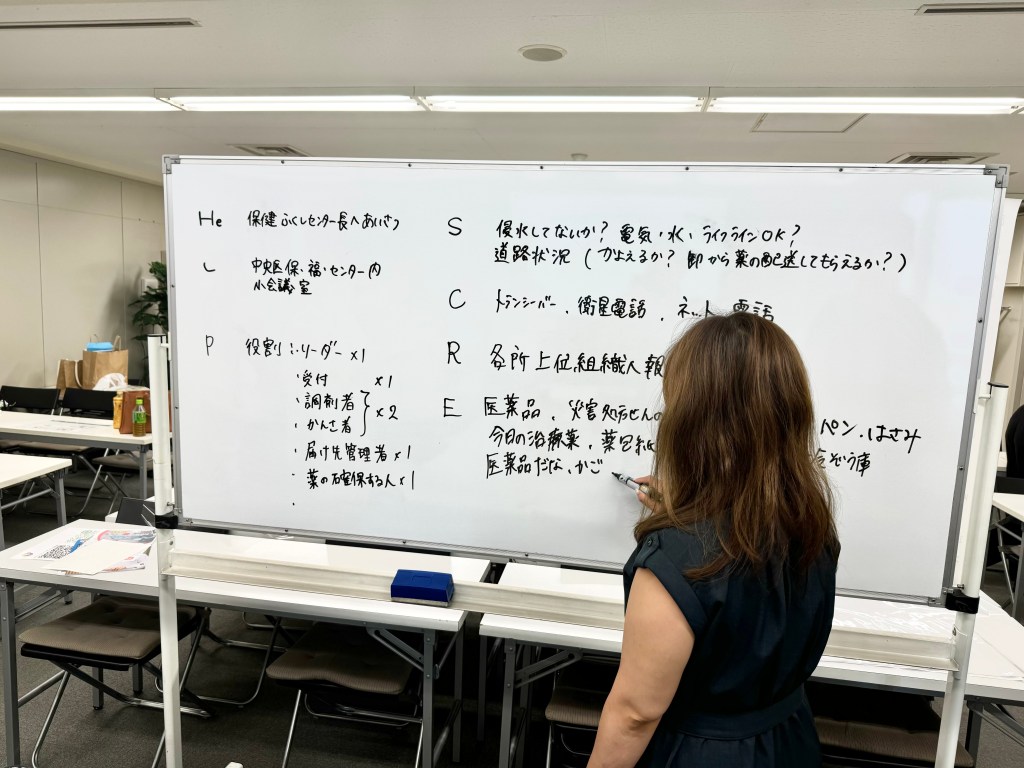 He 保健ふくしセンター長へあいさつ
L 中央医保・福・センター内
小会議室
P 役割:・リーダー×1
・受付 ×1
・調剤者
・かんさ者 ×2
・届け先管理者×1
・薬の確保する人×1
・
S 侵水してないか? 電気・水・ライフラインOK?
道路状況 (かよえるか? 卸から薬の配送してもらえるか?)
C トランシーバー、衛星電話、ネット 電話
R 各所上位組織へ報
E 医薬品、災害処方せんの ペン、はさみ
今日の治療薬、薬包紙 ぞう庫
医薬品だな、かご